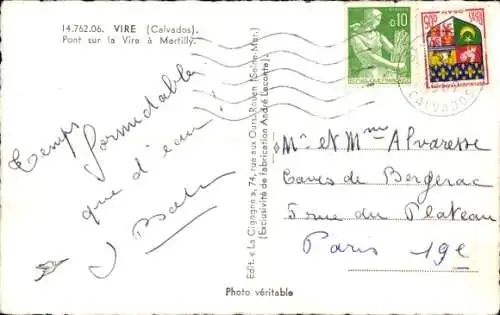 14.762.06. VIRE (Calvados).
Pont sur la Vire à Martilly.
Temps formidable
que d'eau !
Edit. « La Cigogne », 74, rue aux Ours, Rouen (Seine-Mar.)
(Exclusivité de fabrication André Leconte)
0,10
CALVADOS
Mr et Mme Alvaresse
Caves de Bergerac
5 rue du Plateau
Paris 19e
Photo véritable